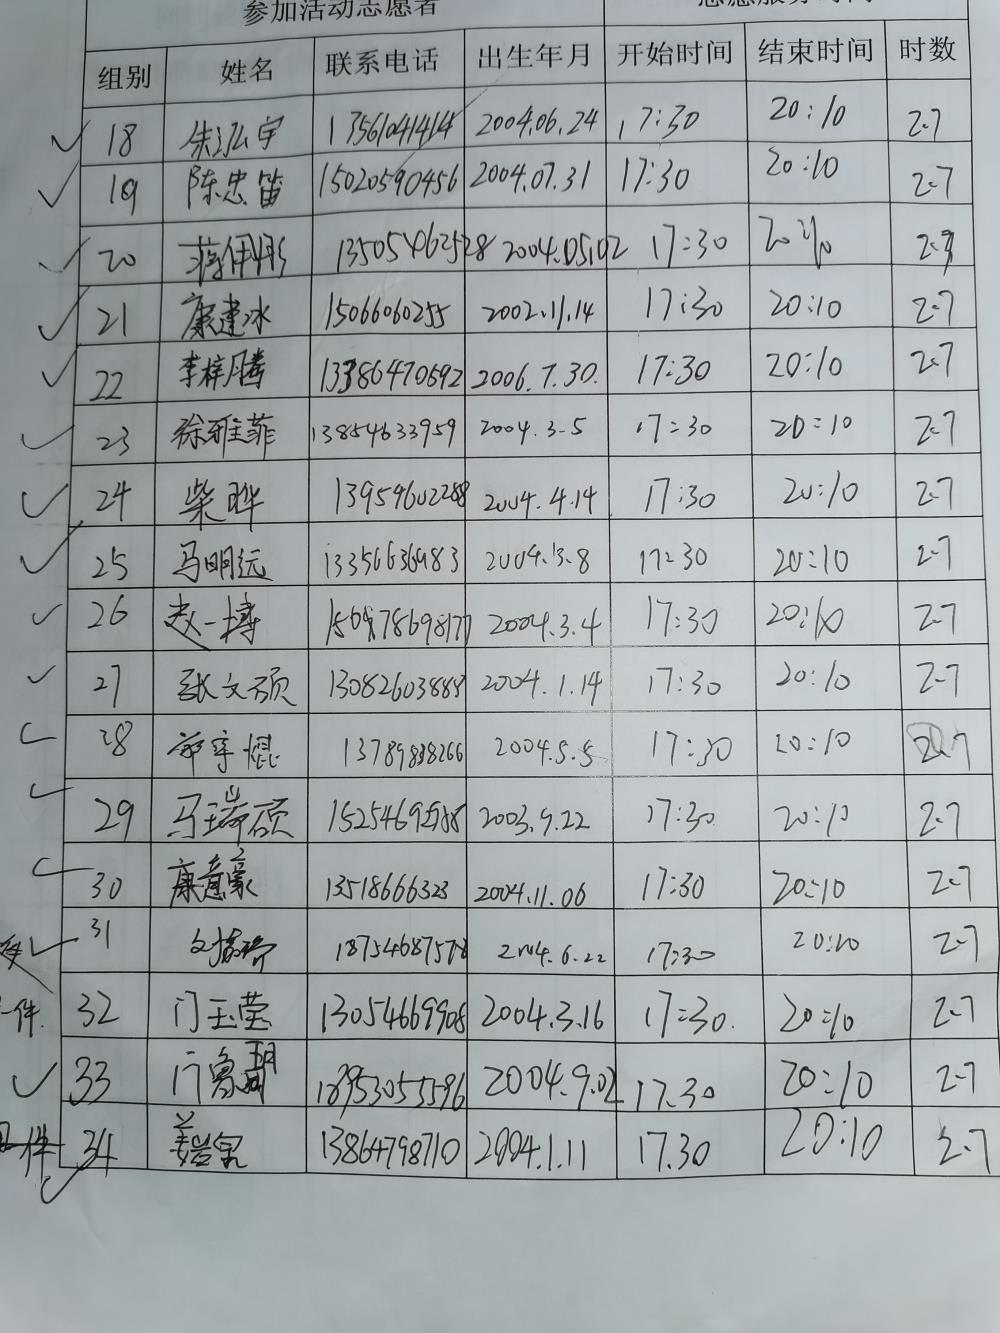 参加活动志愿者 志愿服务时间
组别 姓名 联系电话 出生年月 开始时间 结束时间 时数
18 朱泓宇 13561041414 2004.06.24 17:30 20:10 2.7
19 陈忠笛 15020590456 2004.07.31 17:30 20:10 2.7
20 蒋伊彤 13505462528 2004.05.02 17:30 20:10 2.7
21 康建冰 15066060255 2002.11.14 17:30 20:10 2.7
22 李梓腾 2006.7.30. 17:30 20:10 2.7
23 徐雅菲 13854633959 2004.3.5 17:30 20:10 2.7
24 柴晔 13959602288 2004.4.14 17:30 20:10 2.7
25 马明远 13356636983 2004.3.8 17:30 20:10 2.7
26 赵一搏 2004.3.4 17:30 20:10 2.7
27 张文硕 13082603888 2004.1.14 17:30 20:10 2.7
28 郭宇焜 13789838266 2004.5.5 17:30 20:10 2.7
29 马瑞硕 2003.9.22 17:30 20:10 2.7
30 康意豪 13518666323 2004.11.06 17:30 20:10 2.7
31 2004.6.22 17:30 20:10 2.7
件. 32 门玉莹 13054669908 2004.3.16 17:30. 20:10 2.7
33 门象玥 2004.9.02 17.30 20:10 2.7
件 34 姜岩宏 13864798710 2004.1.11 17.30 20:10 2.7